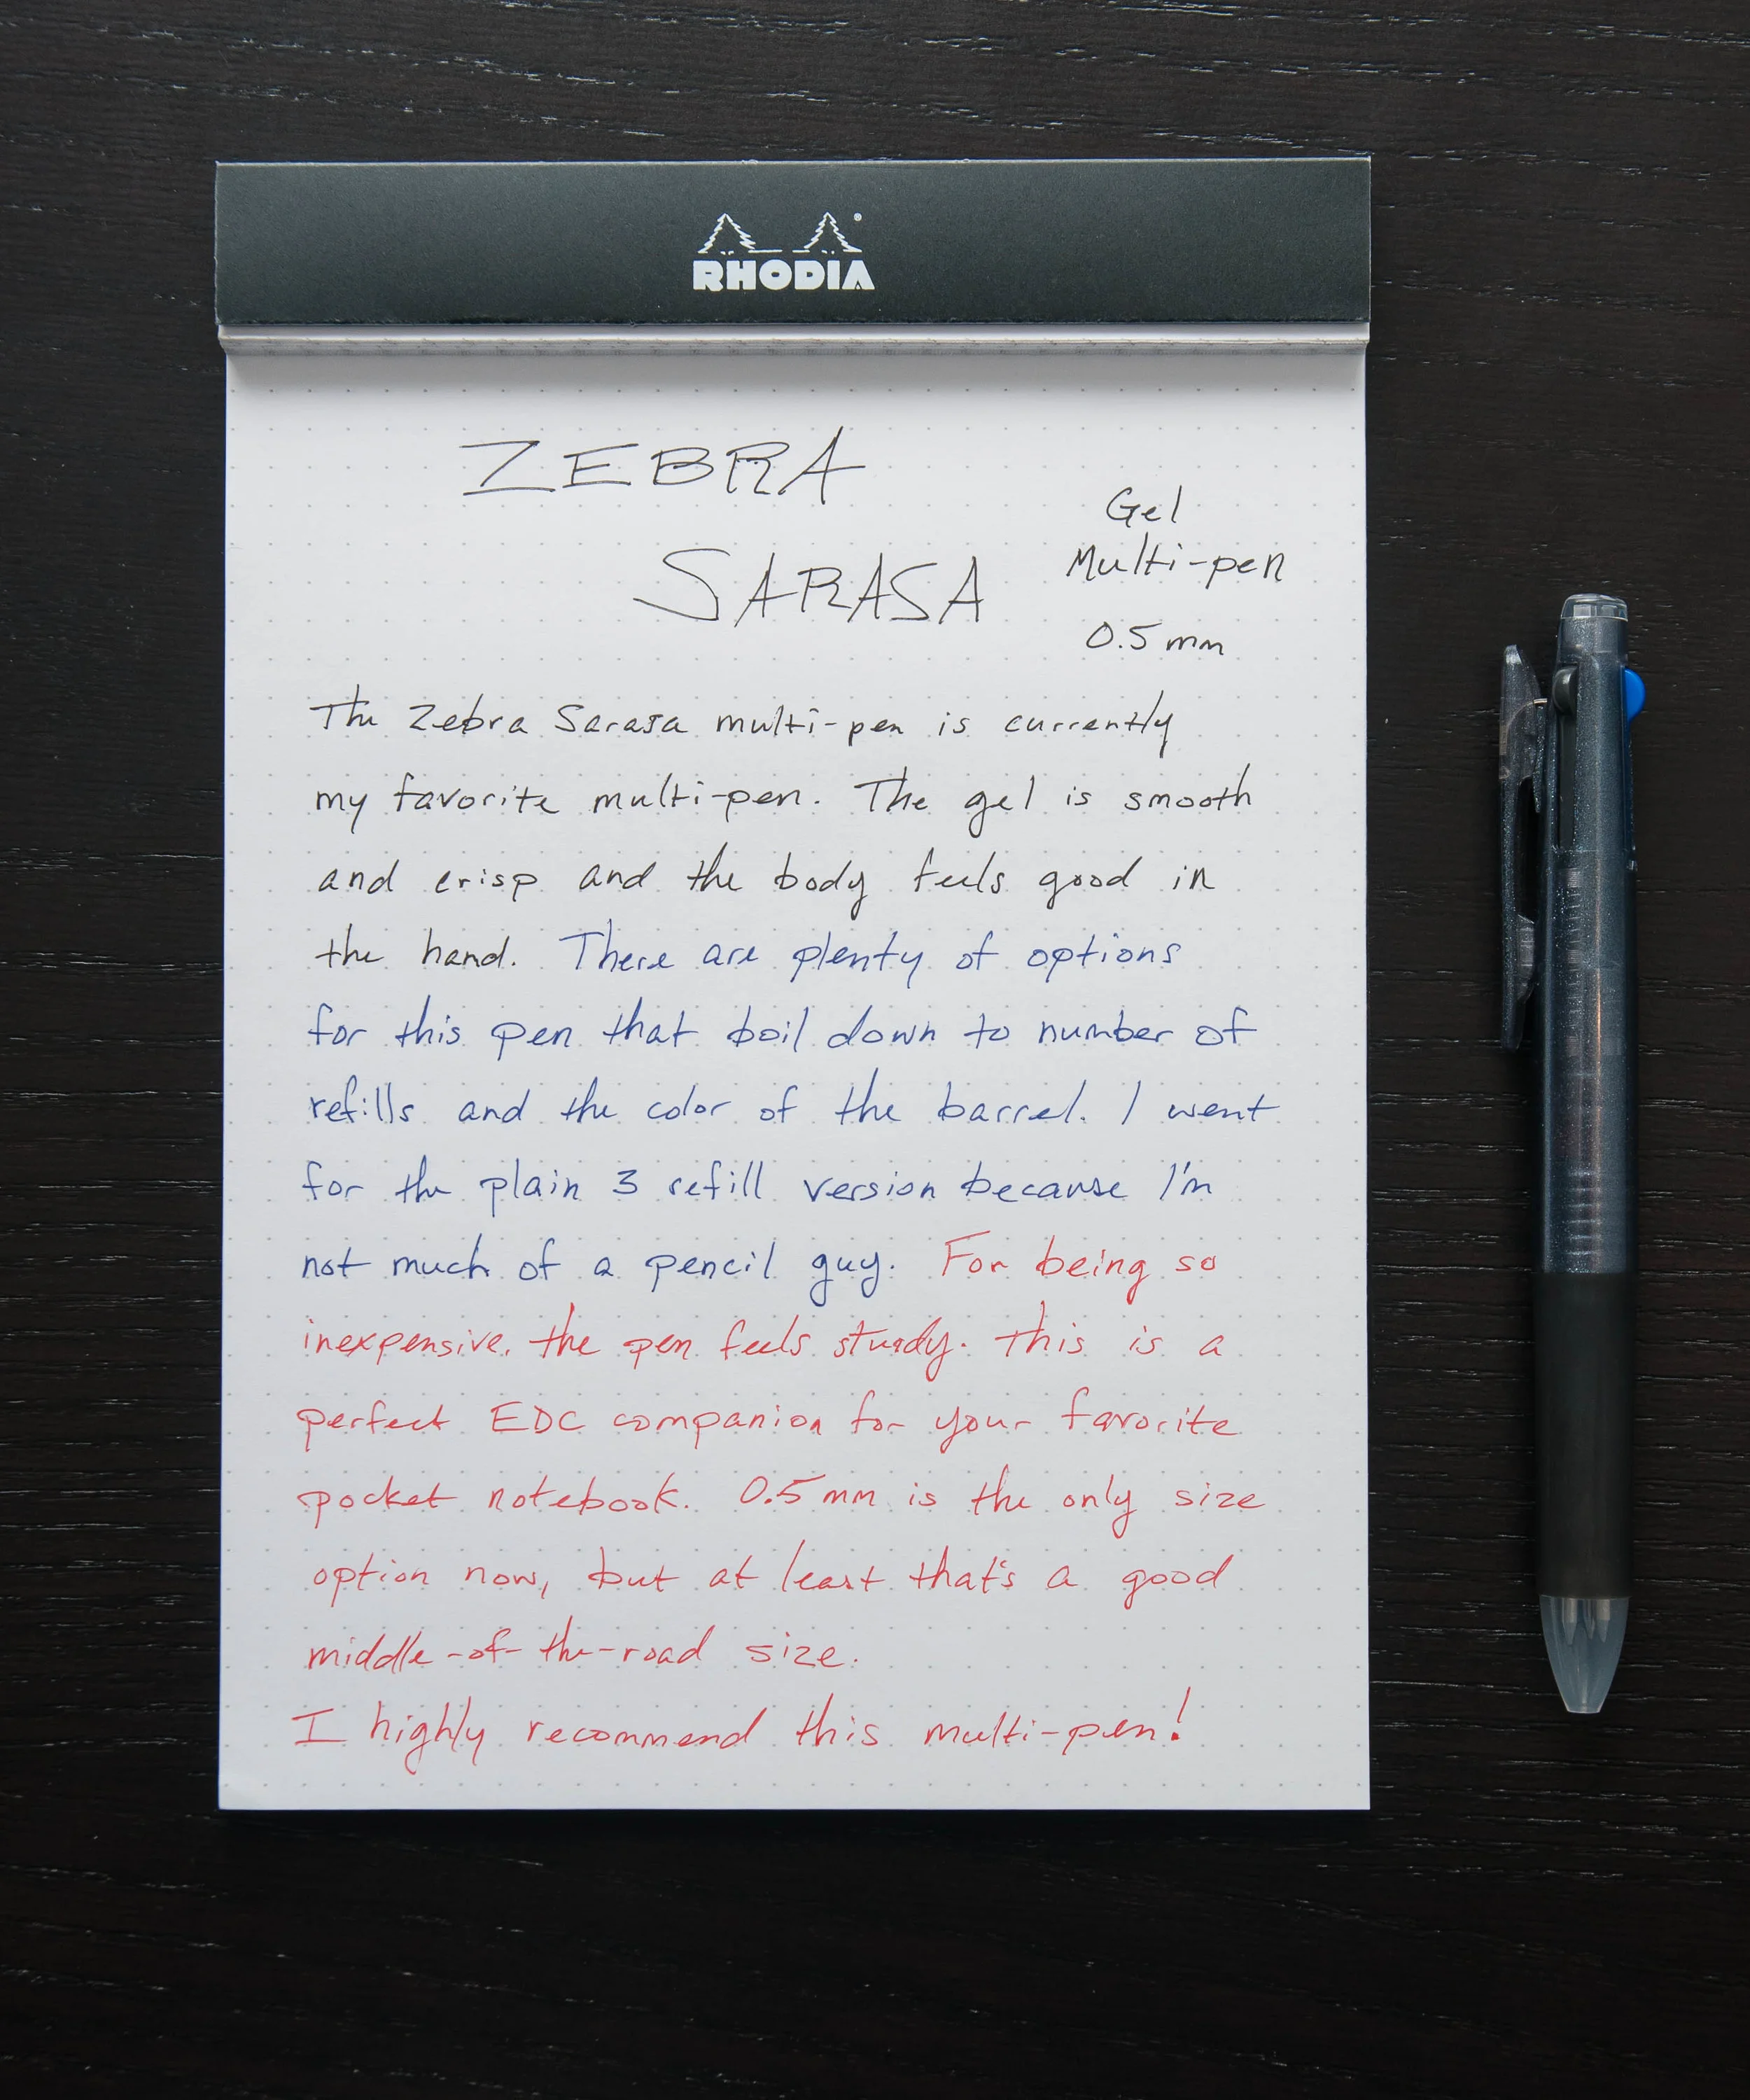 RHODIA
ZEBRA
SARASA
Gel
Multi-pen
0.5 mm
The Zebra Sarasa multi-pen is currently
my favorite multi-pen. The gel is smooth
and crisp and the body feels good in
the hand. There are plenty of options
for this pen that boil down to number of
refills and the color of the barrel. I went
for the plain 3 refill version because I'm
not much of a pencil guy. For being so
inexpensive, the pen feels sturdy. This is a
perfect EDC companion for your favorite
pocket notebook. 0.5 mm is the only size
option now, but at least that's a good
middle-of-the-road size.
I highly recommend this multi-pen!